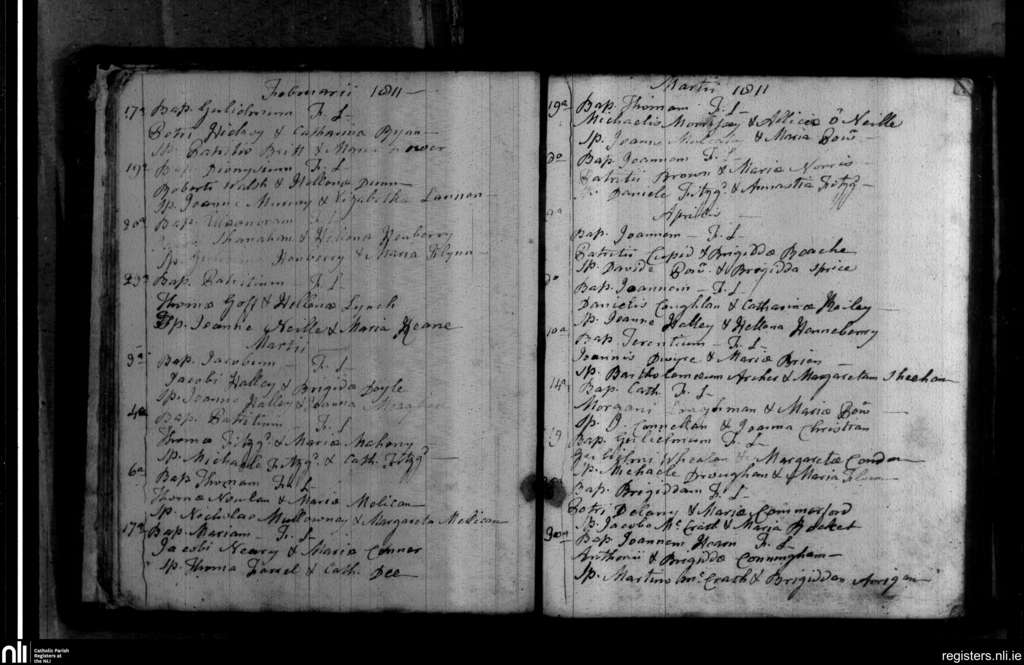 Februarii 1811
17a Bap. Gulielmum F. L.
Petri Hickey & Catharina Ryan
Sp. Patritio Britt & Maria Power
19a Bap. Dionysium F. L.
Roberti Walsh & Hellena Dunn
Sp. Joanne Murray & Elizabetha Lannon
20a Bap. Eleonoram F. L.
Shanahan & Hellena Henberry
Sp. Henberry & Maria Flynn
23a Bap. Patritium F. L.
Thoma Goff & Hellena Lynch
Sp. Joanne Neille & Maria Keane
Martii
3a Bap. Jacobum F. L.
Jacobi Halley & Brigida Doyle
Sp. Joanne Halley & Joanna
4a Bap. Patritium F. L.
Thoma Fitzg. & Maria Mahony
Sp. Michaele Fitzg. & Cath. Fitzg.
6a Bap. Thomam F. L.
Thoma Nowlan & Maria Molican
Sp. Nicholao Mullowney & Margareta Molican
17a Bap. Mariam F. L.
Jacobi Neary & Maria Connor
Sp. Thoma Farrel & Cath. Dee
Martii 1811
19a Bap. Thomam F. L.
Michaelis & Allicia O Neille
Sp. Joanne & Maria
Do Bap. Joannem F. L.
Patritii Brown & Maria Norris
Sp. Daniele Fitzg. & Annastia Fitzg.
Aprillis
Bap. Joannem F. L.
Patritii Cupid & Brigidda Roache
Sp. Davide & Brigidda Sprice
Do Bap. Joannem F. L.
Danielis Coughlan & Catharina Hailey
Sp. Joanne Halley & Hellena Henneberry
10a Bap. Terentium F. L.
Joannis Dwyre & Maria Brien
Sp. Bartholomaeum Archer & Margaretam Sheehan
14a Bap. Cath. F. L.
Morgani & Maria
Sp. Connellan & Joanna Christian
Bap. Gulielmum F. L.
Wheatan & Margareta Condon
Sp. Michaele Droughan & Maria
Bap. Brigiddam F. L.
Petri Delany & Maria Commerford
Sp. Jacobo McCrath & Maria Becket
Bap. Joannem Hearn F. L.
Anthonii & Brigidda Cunningham
Sp. Martino McCrath & Brigiddam
nli
Catholic Parish
Registers at
the NLI
registers.nli.ie